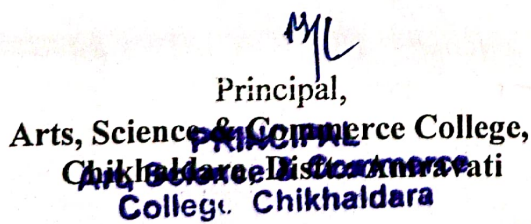 Principal,
Arts, Science & Commerce College,
Chikhaldara, Distt. Amravati
PRINCIPAL
Art, Science & Commerce
College Chikhaldara